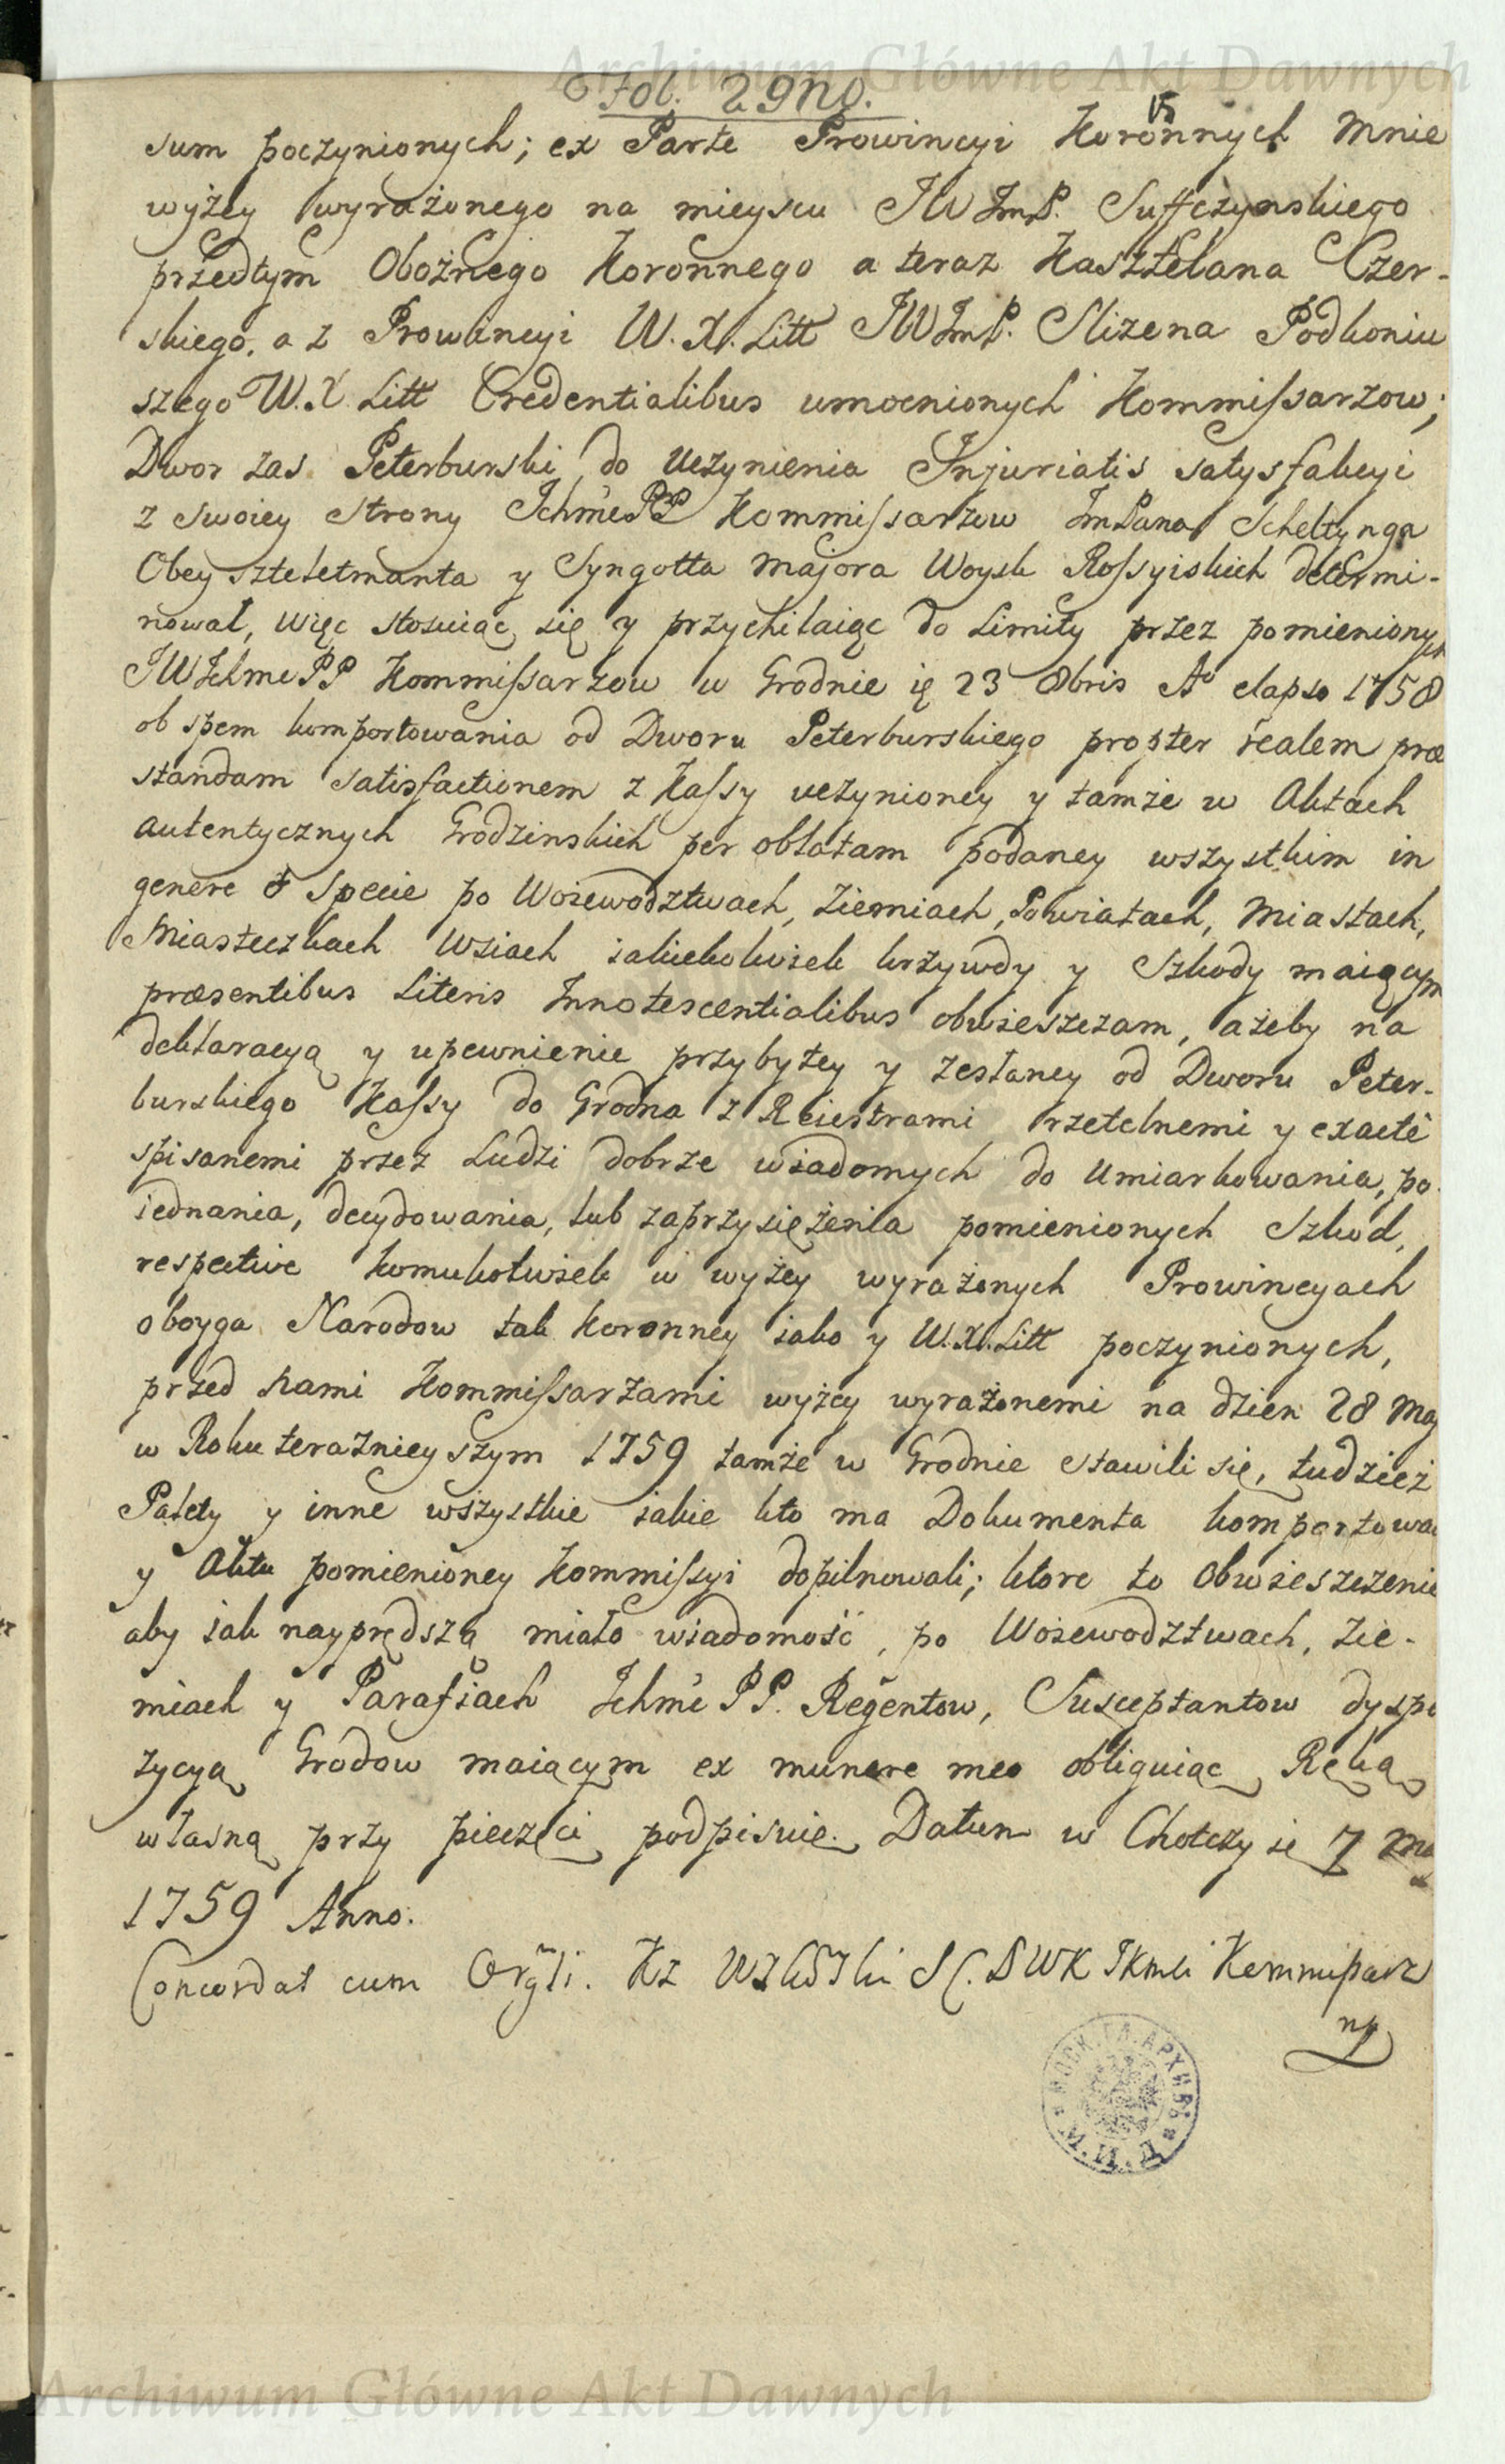 Archiwum Główne Akt Dawnych
Fol. 29no.
15
sum poczynionych; ex Parte Prowincyi Koronnych Mnie
wyżey wyrażonego na mieyscu JW ImP. Suffczynskiego
przedtym Oboźnego Koronnego a teraz Kasztelana Czer-
skiego, a z Prowincyi W.X.Litt JWImP. Slizena Podkoniu
szego W.X Litt Credentialibus umocnionych Kommissarzow;
Dwor zas Peterburski do Uczynienia Injuriatis satysfakcyi
z swoiey strony IchmćPP Kommissarzow ImPana Scheltynga
Obeyszteletmanta y Syngotta Majora Woysk Rossyiskich determi-
nował, więc stosuiąc się y przychilaiąc do Limity przez pomienionych
JWIchmcPP Kommissarzow w Grodnie ię 23 8bris Ao elapso 1758
ob spem komportowania od Dworu Peterburskiego propter realem præ
standam satisfactionem z Kassy uczynioney y tamże w Aktach
autentycznych Grodzinskich per oblatam podaney wszystkim in
genere & specie po Woiewodztwach, Ziemiach, Powiatach, Miastach,
Miasteczkach Wsiach iakiekolwiek krzywdy y Szkody maiącym
præsentibus Literis Innotescentialibus obwieszczam, ażeby na
deklaracyą y upewnienie przybyłey y zesłaney od Dworu Peter-
burskiego Kassy do Grodna z Reiestrami rzetelnemi y exactè
spisanemi przez Ludzi dobrze wiadomych do umiarkowania, po
iednania, decydowania, lub zaprzysiężenia pomienionych Szkod,
respective komukolwiek w wyżey wyrażonych Prowincyach
oboyga Narodow tak Koronney iako y W.X.Litt poczynionych,
przed nami Kommissarzami wyżey wyrażonemi na dzien 28 Maj
w Roku teraznieyszym 1759 tamże w Grodnie stawili się, tudzież
Palety y inne wszystkie iakie kto ma Dokumenta komportowa
y Aktu pomienioney Kommissyi dopilnowali; ktore to Obwieszczenie
aby iak nayprędszą miało wiadomość, po Woiewodztwach, Zie-
miach y Parafiach Ichmć PP. Regentow, Susceptantow dyspo
zycyą Grodow maiącym ex munere meo obliguiąc Ręką
własną przy pieczęci podpisuię. Datum w Chotczy ie 7 Ma
1759 Anno.
Concordat cum Orgli.
mp
МОСК. ГЛ. АРХИВЪ
М.И.Д
Archiwum Główne Akt Dawnych